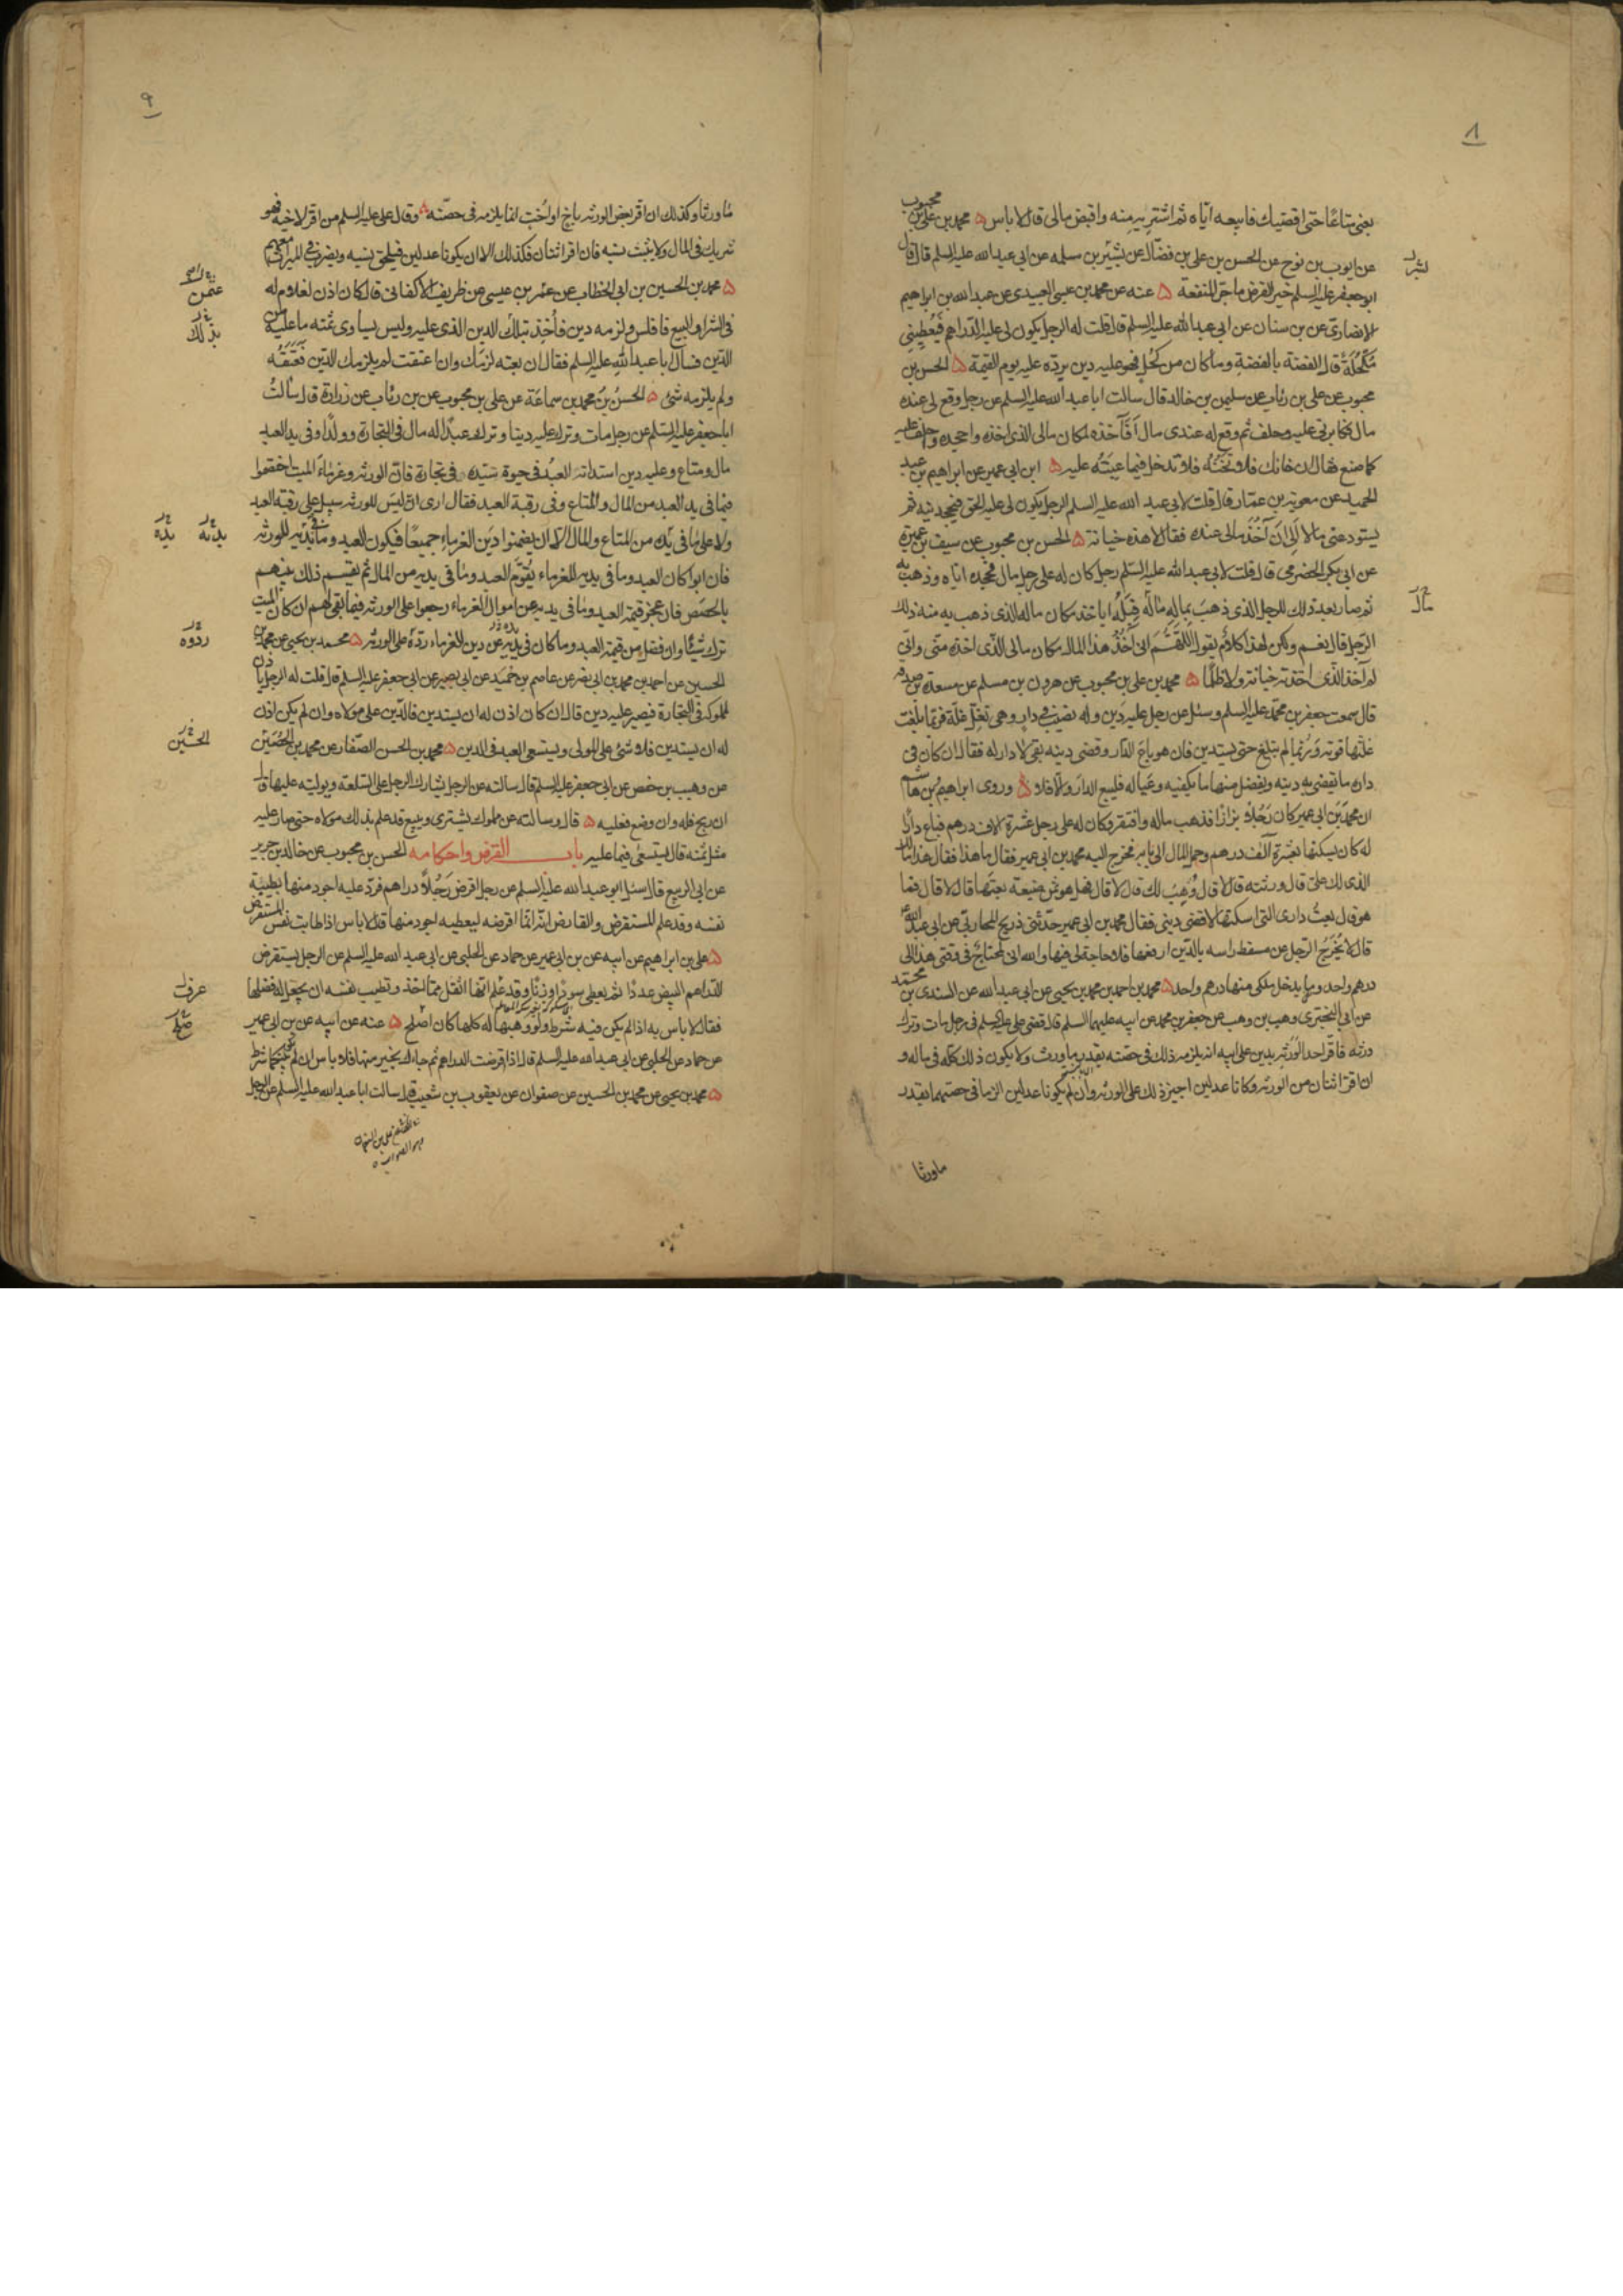 ٨
بعنى متاعًا حتى اقضيك فابيعه اياه ثم اشتريه منه واقبض مالى قال لا باس ۵ محمد بن على بن محبوب
عن ايوب بن نوح عن الحسن بن على بن فضال عن بشير بن سلمه عن ابى عبد الله عليه السلم قال قال
ابو جعفر عليه السلم خير القرض ما جر المنفعة ۵ عنه عن محمد بن عيسى العبيدى عن عبد الله بن ابراهيم
الانصارى عن بن سنان عن ابى عبد الله عليه السلم قال قلت له الرجل يكون لى عليه الدراهم فيعطينى
مكحلة قال الفضة بالفضة وما كان من كحل فهو عليه دين يرده عليه يوم القيمة ۵ الحسن بن
محبوب عن على بن رئاب عن سليمن بن خالد قال سالت ابا عبد الله عليه السلم عن رجل وقع لى عنده
مال فكابرنى عليه وحلف ثم وقع له عندى مال أفآخذه لمكان مالى الذى اخذه واجحده واحلف عليه
كما صنع فقال ان خانك فلا تخنه فلا تدخل فيما عبته عليه ۵ ابن ابى عمير عن ابراهيم بن عبد
الحميد عن معوية بن عمار قال قلت لابى عبد الله عليه السلم الرجل يكون لى عليه الحق فيجحدنيه ثم
يستودعنى مالا ألى ان آخذ مالى عنده فقال لا هذه خيانة ۵ الحسن بن محبوب عن سيف بن عميرة
عن ابى بكر الحضرمى قال قلت لابى عبد الله عليه السلم رجل كان له على رجل مال فجحده اياه وذهب به
ثم صار بعد ذلك للرجل الذى ذهب بماله مال قبله اياخذه مكان ماله الذى ذهب به منه ذلك
الرجل قال نعم ولكن لهذا كلام يقول اللهم انى آخذ هذا المال مكان مالى الذى اخذه منى وانى
لم آخذ الذى اخذته خيانة ولا ظلمًا ۵ محمد بن على بن محبوب عن هرون بن مسلم عن مسعدة بن صدقه
قال سمعت جعفر بن محمد عليه السلم وسئل عن رجل عليه دين وله نصيب فى دار وهى تغل غلة فربما بلغت
غلتها قوته وربما لم تبلغ حتى يستدين فان هو باع الدار وقضى دينه بقى لا دار له فقال ان كان فى
داره ما يقضى به دينه ويفضل منها ما يكفيه وعياله فليبع الدار والا فلا ۵ وروى ابراهيم بن هاشم
ان محمد بن ابى عمير كان رجلا بزازًا فذهب ماله وافتقر وكان له على رجل عشرة الاف درهم فباع دارًا
له كان يسكنها بعشرة آلف درهم وحمل المال الى بابه فخرج اليه محمد بن ابى عمير فقال ما هذا فقال هذا مالك
الذى لك علىّ قال ورثته قال لا قال وهب لك قال لا قال فهل هو ثمن ضيعة بعتها قال لا قال فما
هو قال بعت دارى التى اسكنها لاقضى دينى فقال محمد بن ابى عمير حدثنى ذريح المحاربى عن ابى عبد الله
قال لا يخرج الرجل من مسقط راسه بالدين ارفعها فلا حاجة لى فيها والله انى لمحتاج فى وقتى هذا الى
درهم واحد وما يدخل ملكى منها درهم واحد ۵ محمد بن احمد بن محمد بن يحيى عن ابى عبد الله عن السندى بن محمد
عن ابى البخترى وهب بن وهب عن جعفر بن محمد عن ابيه عليهما السلم قال قضى على عليه السلم فى رجل مات وترك
ورثه فاقر احد الورثه بدين على ابيه انه يلزمه ذلك فى حصته بقدر ما ورث ولا يكون ذلك كله فى ماله و
ان اقر اثنان من الورثه وكانا عدلين اجيز ذلك على الورثه وان لم يكونا عدلين الزما فى حصتهما بقدر
ماورثا
مال
٩
ما ورثا وكذلك ان اقر بعض الورثه باخ او اخت انما يلزمه فى حصته ۵ وقال على عليه السلم من اقر لاخيه فهو
شريك فى المال ولا يثبت نسبه فان اقر اثنان فكذلك الا ان يكونا عدلين فيلحق نسبه ويضرب فى الميراث معهم
۵ محمد بن الحسين بن ابى الخطاب عن عمر بن عيسى عن ظريف الاكفانى قال كان اذن لغلام له
فى الشرا والبيع فافلس ولزمه دين فاخذ بذلك الدين الذى عليه وليس يساوى ثمنه ما عليه من
الدين فسال ابا عبد الله عليه السلم فقال ان بعته لزمك وان اعتقت لم يلزمك الدين فعتقه
ولم يلزمه شئ ۵ الحسن بن محمد بن سماعة عن على بن محبوب عن بن رئاب عن زرارة قال سالت
ابا جعفر عليه السلم عن رجل مات وترك عليه دينا وترك عبدًا له مال فى التجارة وولدًا وفى يد العبد
مال ومتاع وعليه دين استدانه العبد فى حيوة سيده فى تجارة فان الورثه وغرماء الميت اختصموا
فيما فى يد العبد من المال والمتاع وفى رقبة العبد فقال ارى ان ليس للورثه سبيل على رقبة العبد
ولا على ما فى يده من المتاع والمال الا ان يضمنوا دين الغرماء جميعًا فيكون العبد وما فى يديه للورثه
فان ابوا كان العبد وما فى يديه للغرماء يقوّم العبد وما فى يديه من المال ثم يقسم ذلك بينهم
بالحصص فان عجز قيمة العبد وما فى يديه عن اموال الغرماء رجعوا على الورثه فيما بقى لهم ان كان الميت
ترك شيئًا وان فضل من قيمة العبد وما كان فى يديه عن دين الغرماء ردّه على الورثه ۵ محمد بن يحيى عن محمد بن
الحسين عن احمد بن محمد بن ابى نصر عن عاصم بن حميد عن ابى بصير عن ابى جعفر عليه السلم قال قلت له الرجل ياذن
لمملوكه فى التجارة فيصير عليه دين قال ان كان اذن له ان يستدين فالدين على مولاه وان لم يكن اذن
له ان يستدين فلا شئ على المولى ويستسعى العبد فى الدين ۵ محمد بن الحسن الصفار عن محمد بن الحصين
عن وهيب بن حفص عن ابى جعفر عليه السلم قال سالته عن الرجل يشارك الرجل على السلعة ويوليه عليها قال
ان ربح فله وان وضع فعليه ۵ قال وسالته عن مملوك يشترى ويبيع قد علم بذلك مولاه حتى صار عليه
مثل ثمنه قال يستسعى فيما عليه باب القرض واحكامه الحسن بن محبوب عن خالد بن جرير
عن ابى الربيع قال سئل ابو عبد الله عليه السلم عن رجل اقرض رجلًا دراهم فرد عليه اجود منها بطيبة
نفسه وقد علم المستقرض والقارض انه انما اقرضه ليعطيه اجود منها قال لا باس اذا طابت نفس المستقرض
۵ على بن ابراهيم عن ابيه عن بن ابى عمير عن حماد عن الحلبى عن ابى عبد الله عليه السلم عن الرجل يستقرض
الدراهم البيض عددًا ثم يعطى سودًا وزنًا وقد علم انها اثقل مما اخذ وتطيب نفسه ان يجعل له فضلها
فقال لا باس به اذا لم يكن فيه شرط ولو وهبها له كلها كان اصلح ۵ عنه عن ابيه عن بن ابى عمير
عن حماد عن الحلبى عن ابى عبد الله عليه السلم قال اذا اقرضت الدراهم ثم جاءك بخير منها فلا باس ان لم يكن بينكما شرط
۵ محمد بن يحيى عن محمد بن الحسين عن صفوان عن يعقوب بن شعيب قال سالت ابا عبد الله عليه السلم عن الرجل
عثمن
بذلك
يديه يده
ردوه
الحسين